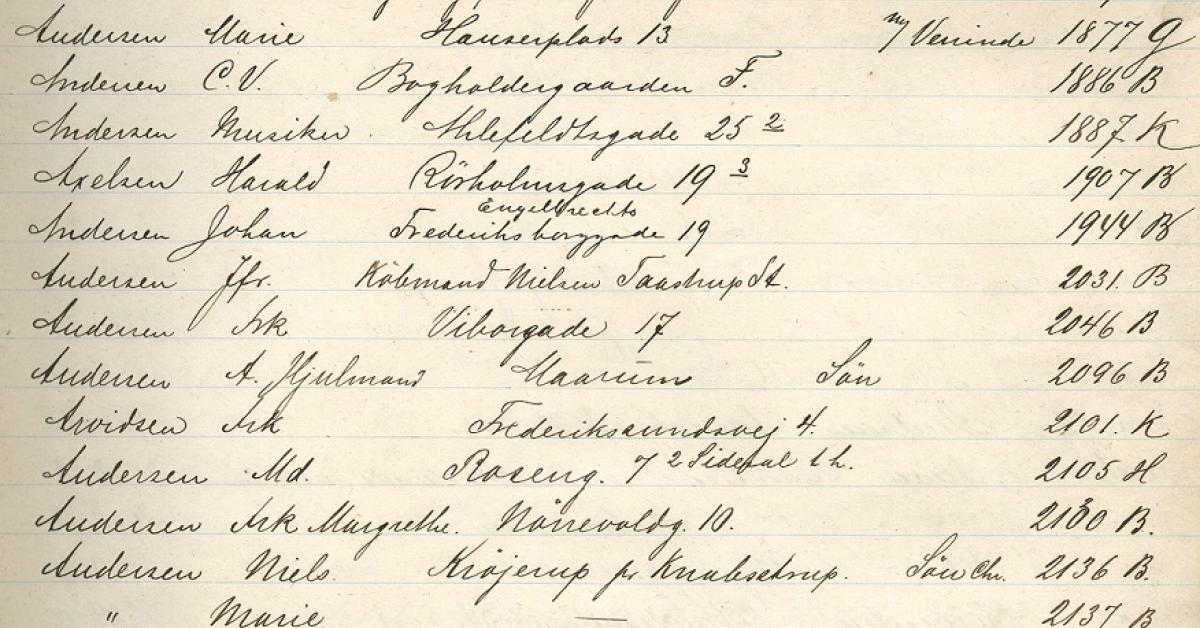 Andersen Marie Hauserplads 13 ny Veninde 1877 G
Andersen C.V. Bogholdergaarden F. 1886 B
Andersen Musiker Ahlefeldtsgade 25 2 1887 K
Axelsen Harald Rörholmsgade 19 3 1907 B
Engelbrechts
Andersen Johan Frederiksborggade 19 1944 B
Andersen Jfr. Köbmand Nielsen Taastrup St. 2031. B
Andersen Frk Viborgade 17 2046 B
Andersen A. Hjulmand Maarum Sön 2096 B
Arvidsen Frk Frederikssundsvej 4. 2101. K
Andersen Md. Roseng. 7 2 Sidesal t.h. 2105 H
Andersen Frk Margrethe. Nörrevoldg. 10. 2130 B.
Andersen Niels. Kröjerup pr Knabstrup. Sön Chr. 2136 B.
" Marie — 2137 B